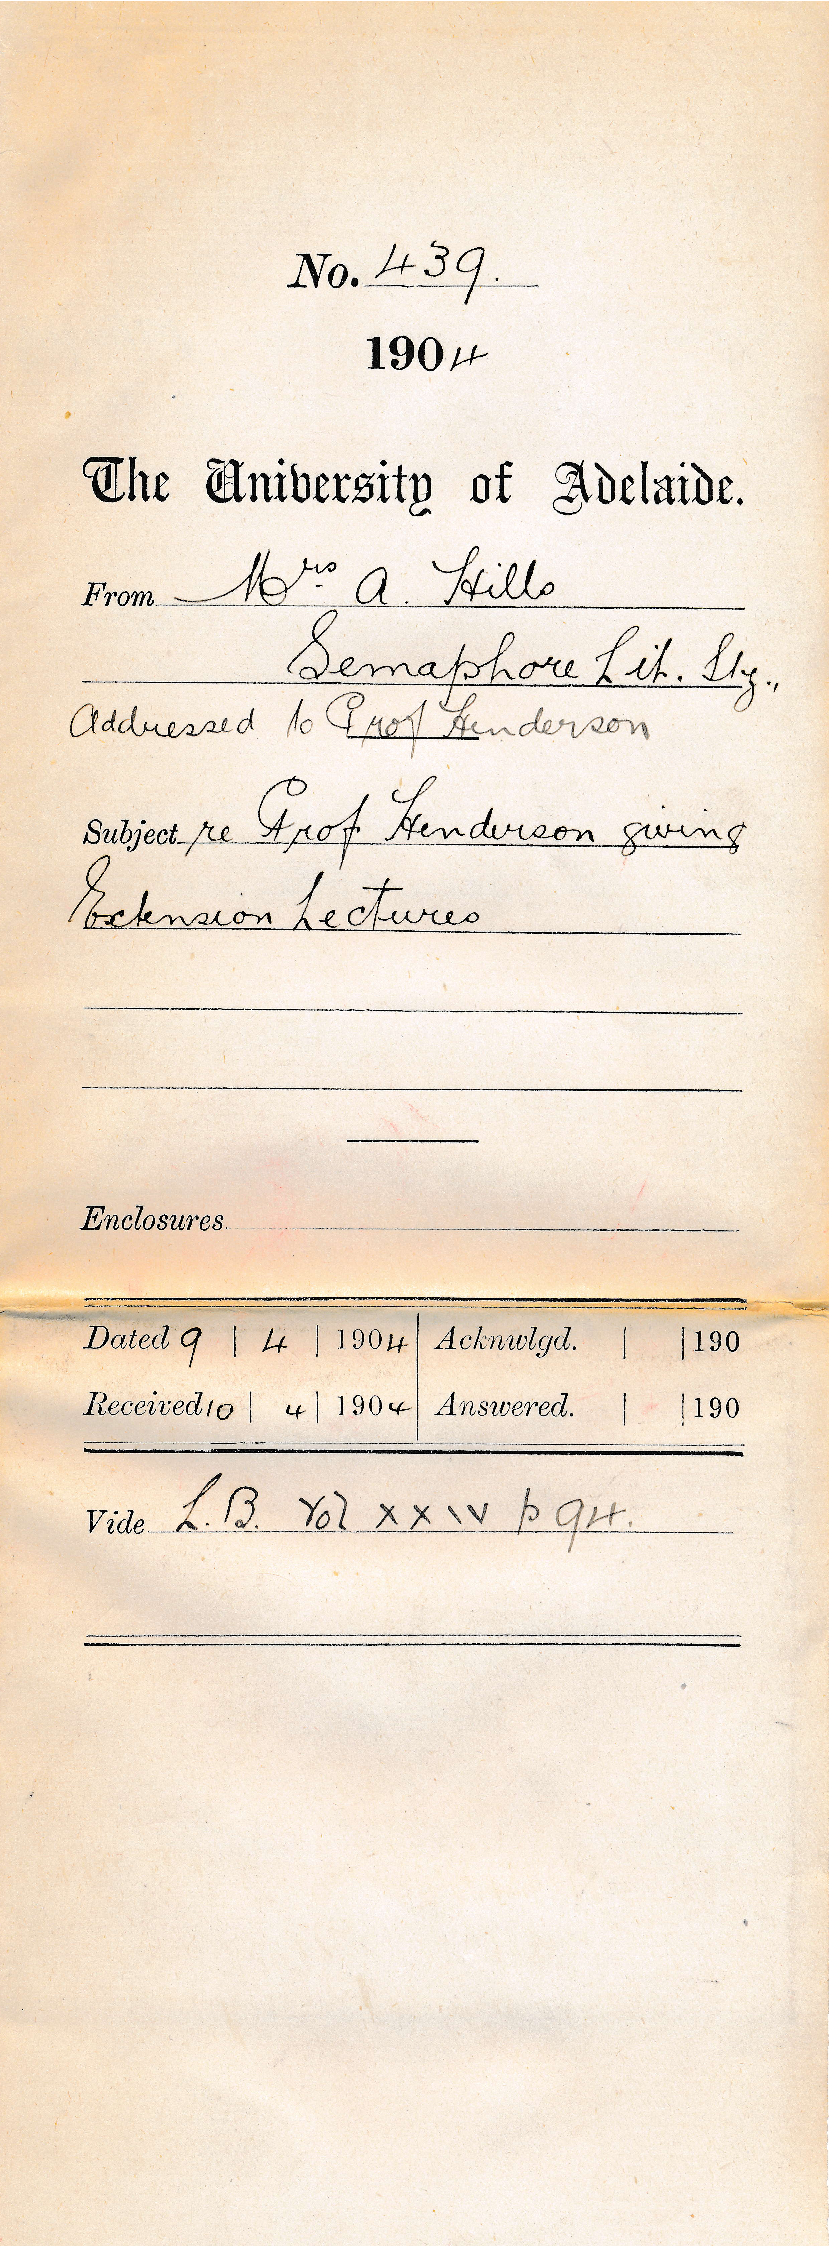 No. 439.
1904
The University of Adelaide.
From Mrs. A. Hills
Semaphore Lit. Sty.,
Addressed to Prof Henderson
Subject re Prof Henderson giving
Extension Lectures
Enclosures
Dated 9 | 4 | 1904 Acknwlgd. | | 190
Received 10 | 4 | 1904 Answered. | | 190
Vide L.B. Vol xxiv p 94.